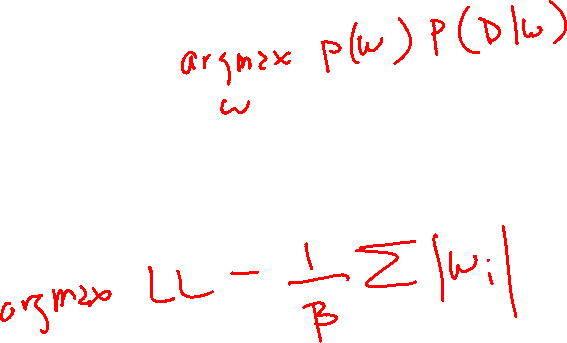 argmax P(w) P(D|w)
w
argmax LL - 1/β Σ |wi|